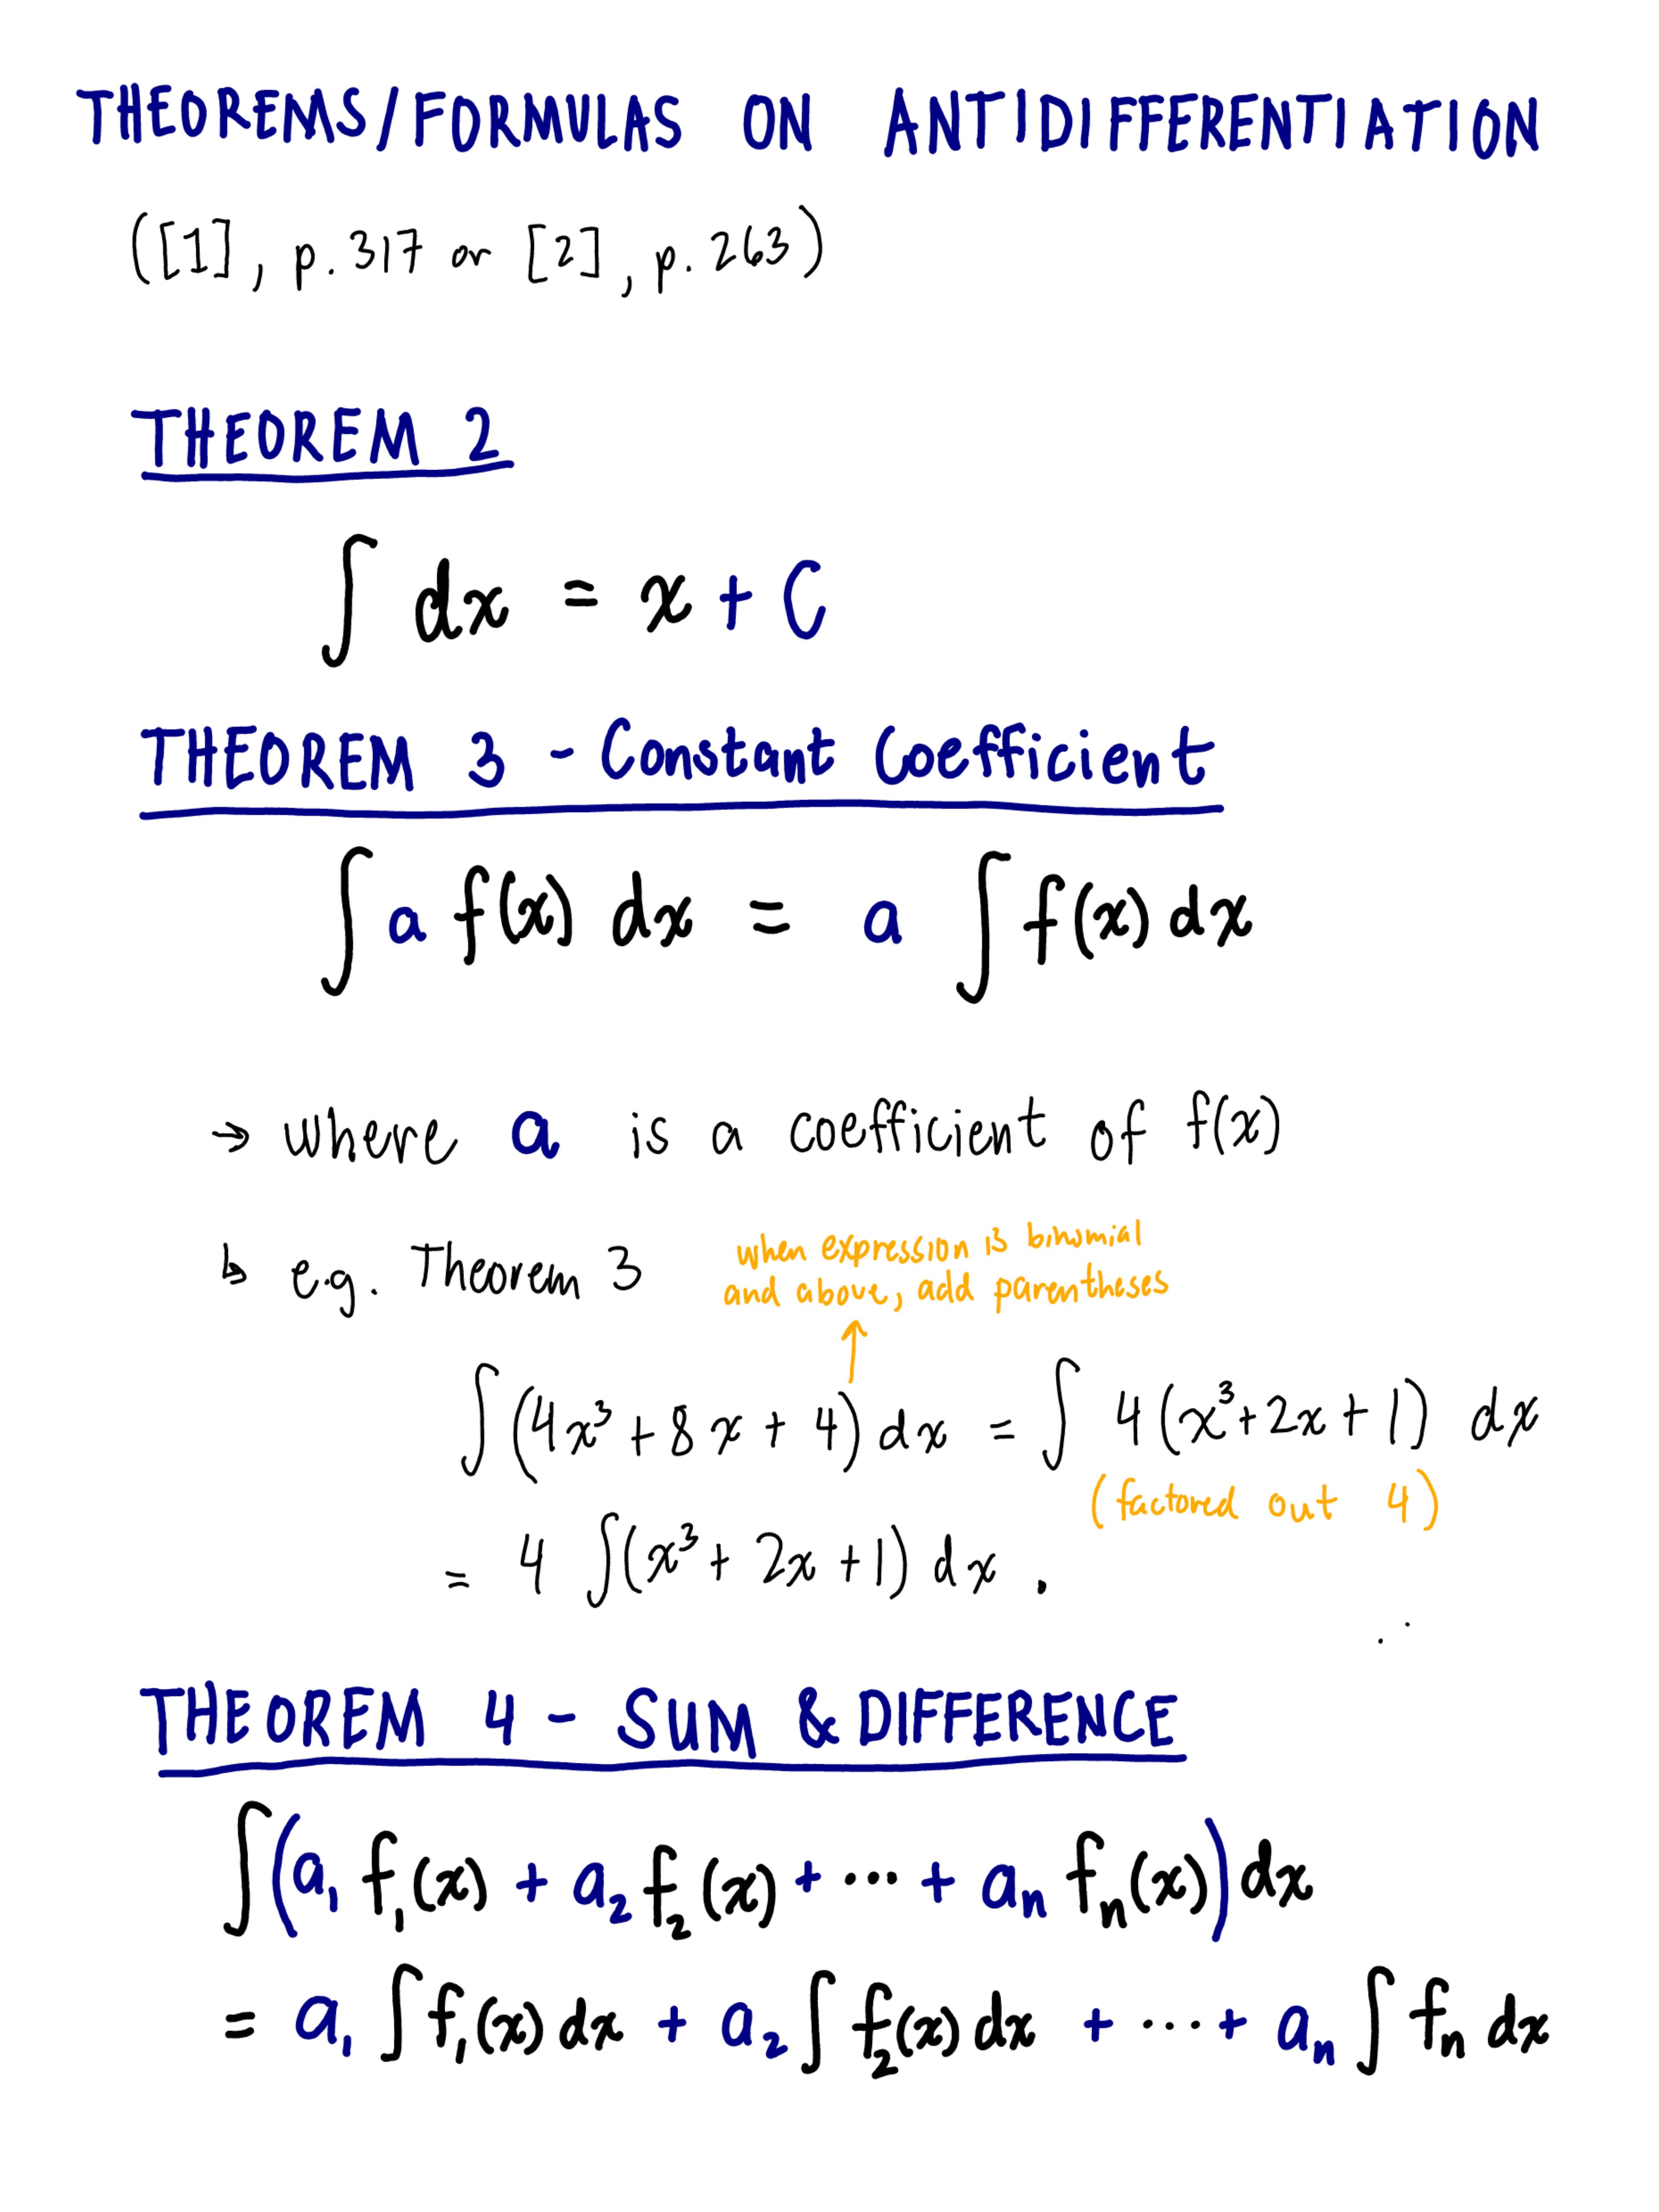 THEOREMS/FORMULAS ON ANTIDIFFERENTIATION
([1], p. 317 or [2], p. 263)
THEOREM 2
∫ dx = x + C
THEOREM 3 - Constant Coefficient
∫ a f(x) dx = a ∫ f(x) dx
→ where a is a coefficient of f(x)
↳ e.g. Theorem 3
when expression is binomial
and above, add parentheses
∫ (4x³ + 8x + 4) dx = ∫ 4 (x³ + 2x + 1) dx
(factored out 4)
= 4 ∫ (x³ + 2x + 1) dx .
THEOREM 4 - SUM & DIFFERENCE
∫ (a₁ f₁(x) + a₂ f₂(x) + ... + aₙ fₙ(x)) dx
= a₁ ∫ f₁(x) dx + a₂ ∫ f₂(x) dx + ... + aₙ ∫ fₙ dx